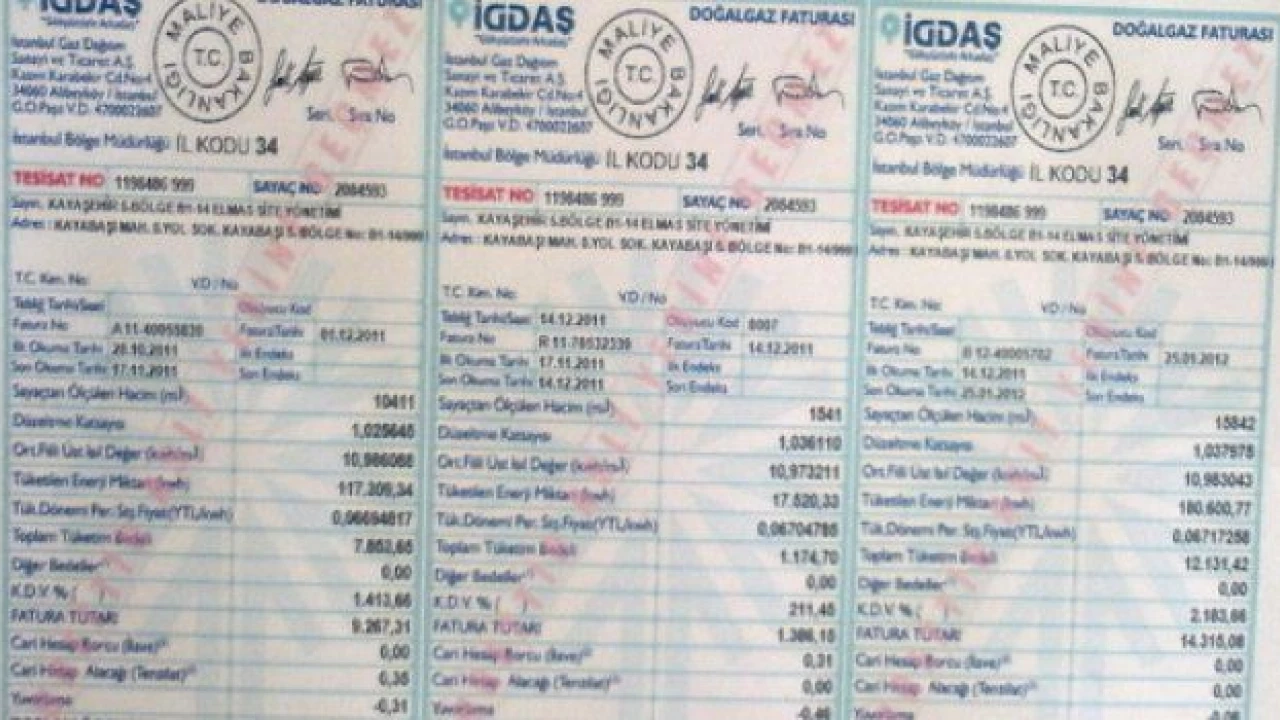 DOĞALGAZ FATURASI
İGDAŞ
MALİYE BAKANLIĞI
T.C.
İstanbul Gaz Dağıtım
Sanayi ve Ticaret A.Ş.
Kazım Karabekir Cd.No:4
34060 Alibeyköy / İstanbul
G.O.Paşa V.D. 4700022607
Seri. Sıra No
İstanbul Bölge Müdürlüğü İL KODU 34
TESİSAT NO 1198486 999 SAYAÇ NO 2084593
Sayın. KAYAŞEHİR 5.BÖLGE B1-14 ELMAS SİTE YÖNETİMİ
Adres : KAYABAŞI MAH. 8.YOL SOK. KAYABAŞI 5. BÖLGE No: B1-14/999
T.C. Kim. No: V.D / No
Tebliğ Tarihi/Saati
Fatura No A 11-40055830 Fatura Tarihi 01.12.2011
İlk Okuma Tarihi 20.10.2011 İlk Endeks
Son Okuma Tarihi 17.11.2011 Son Endeks
Sayaçtan Ölçülen Hacim (m³) 10411
Düzeltme Katsayısı 1,025645
Ort.Fiili Üst Isıl Değer (kwh/m³) 10,986068
Tüketilen Enerji Miktarı (kwh) 117.309,34
Tük.Dönemi Per. Sış.Fiyatı(YTL/kwh) 0,06694817
Toplam Tüketim Bedeli 7.853,65
Diğer Bedeller 0,00
K.D.V. % ( ) 1.413,66
FATURA TUTARI 9.267,31
Cari Hesap Borcu (İlave) 0,00
Cari Hesap Alacağı (Tenzilat) 0,35
Yuvarlama -0,31
İGDAŞ
DOĞALGAZ FATURASI
MALİYE BAKANLIĞI
T.C.
İstanbul Gaz Dağıtım
Sanayi ve Ticaret A.Ş.
Kazım Karabekir Cd.No:4
34060 Alibeyköy / İstanbul
G.O.Paşa V.D. 4700022607
Seri. Sıra No
İstanbul Bölge Müdürlüğü İL KODU 34
TESİSAT NO 1198486 999 SAYAÇ NO 2084593
Sayın. KAYAŞEHİR 5.BÖLGE B1-14 ELMAS SİTE YÖNETİMİ
Adres : KAYABAŞI MAH. 8.YOL SOK. KAYABAŞI 5. BÖLGE No: B1-14/999
T.C. Kim. No: V.D / No
Tebliğ Tarihi/Saati 14.12.2011 Okuyucu Kod 8007
Fatura No R 11-78532339 Fatura Tarihi 14.12.2011
İlk Okuma Tarihi 17.11.2011 İlk Endeks
Son Okuma Tarihi 14.12.2011 Son Endeks
Sayaçtan Ölçülen Hacim (m³) 1541
Düzeltme Katsayısı 1,036110
Ort.Fiili Üst Isıl Değer (kwh/m³) 10,973211
Tüketilen Enerji Miktarı (kwh) 17.520,33
Tük.Dönemi Per. Sış.Fiyatı(YTL/kwh) 0,06704785
Toplam Tüketim Bedeli 1.174,70
Diğer Bedeller 0,00
K.D.V. % ( ) 211,45
FATURA TUTARI 1.386,15
Cari Hesap Borcu (İlave) 0,31
Cari Hesap Alacağı (Tenzilat) 0,00
Yuvarlama -0,46
İGDAŞ
DOĞALGAZ FATURASI
MALİYE BAKANLIĞI
T.C.
İstanbul Gaz Dağıtım
Sanayi ve Ticaret A.Ş.
Kazım Karabekir Cd.No:4
34060 Alibeyköy / İstanbul
G.O.Paşa V.D. 4700022607
Seri. Sıra No
İstanbul Bölge Müdürlüğü İL KODU 34
TESİSAT NO 1198486 999 SAYAÇ NO 2084593
Sayın. KAYAŞEHİR 5.BÖLGE B1-14 ELMAS SİTE YÖNETİMİ
Adres : KAYABAŞI MAH. 8.YOL SOK. KAYABAŞI 5. BÖLGE No: B1-14/999
T.C. Kim. No: V.D / No
Tebliğ Tarihi/Saati Okuyucu Kod
Fatura No B 12-40005702 Fatura Tarihi 25.01.2012
İlk Okuma Tarihi 14.12.2011 İlk Endeks
Son Okuma Tarihi 25.01.2012 Son Endeks
Sayaçtan Ölçülen Hacim (m³) 15842
Düzeltme Katsayısı 1,037975
Ort.Fiili Üst Isıl Değer (kwh/m³) 10,983043
Tüketilen Enerji Miktarı (kwh) 180.600,77
Tük.Dönemi Per. Sış.Fiyatı(YTL/kwh) 0,06717258
Toplam Tüketim Bedeli 12.131,42
Diğer Bedeller 0,00
K.D.V. % ( ) 2.183,66
FATURA TUTARI 14.315,08
Cari Hesap Borcu (İlave) 0,00
Cari Hesap Alacağı (Tenzilat) 0,00
Yuvarlama